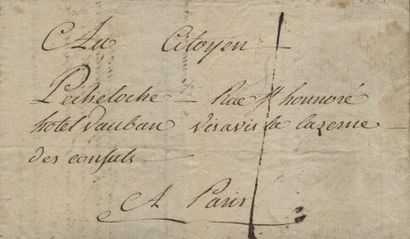 Au Citoyen
Pecheloche Rue St honnoré
hotel vauban visavis la cazerne
des consuls
A Paris